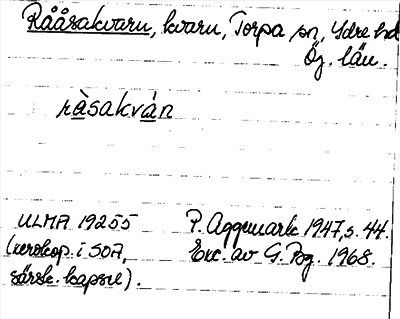 Råårakvarn, kvarn, Torpa sn, Ydre hd
Ög. län.
ràsakván
ULMA 19255 P. Aggemark 1947, s. 44.
(xerokop. i SOA, Exc. av G. Bg. 1968.
särsk. kapsel).